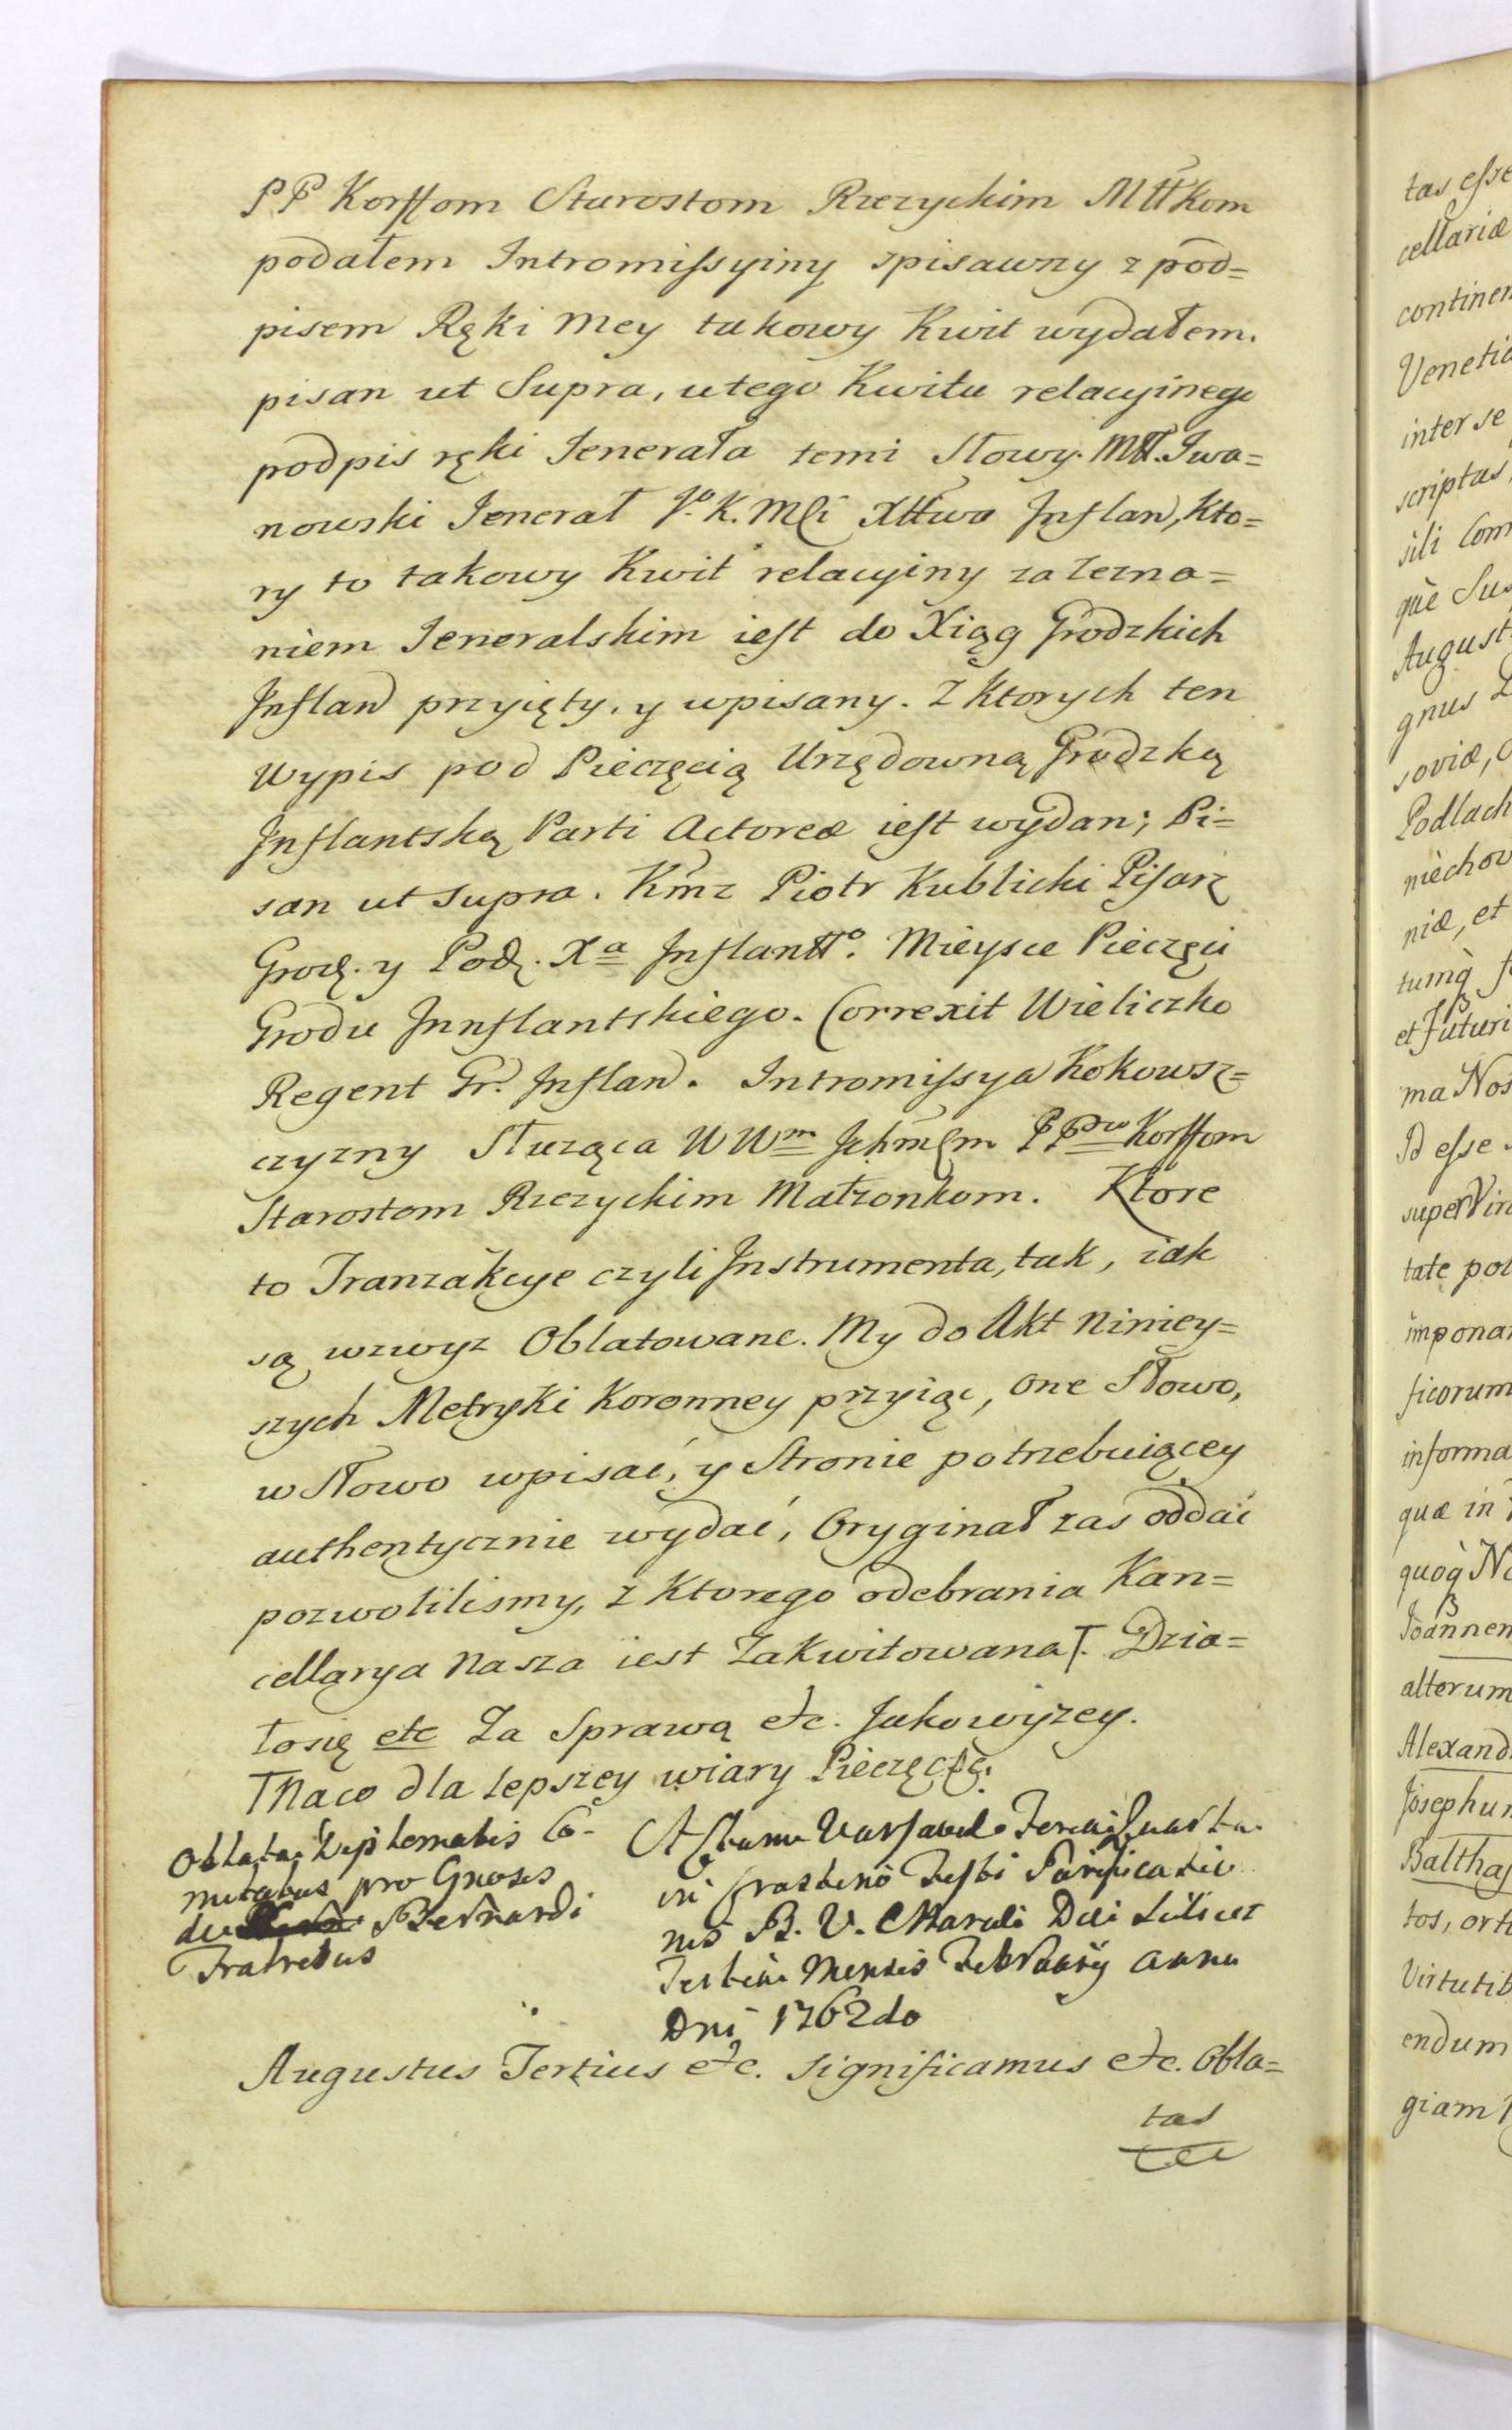 PP Korffom Starostom Rzezyckim Mttkom
podałem Intromissyiny spisawszy z pod=
pisem Ręki mey takowy Kwit wydałem.
pisan ut Supra, u tego Kwitu relacyinego
podpis ręki Jenerała temi Słowy. Mtt. Iwa=
nowski Jenerał Jo. K. Mći Xttwa Jnflan, Kto=
ry to takowy Kwit relacyiny za zezna=
niem Jeneralskim iest do Xiąg Grodzkich
Jnfland przyięty, y wpisany. Z Ktorych ten
Wypis pod Pieczęcią Urzędowną Grodzką
Jnflantską Parti Actoreæ iest wydan; Pi=
san ut supra. Kmz Piotr Kublicki Pisarz
Grodz. y Podz. Xa Jnflantt°. Mieysce Pieczęci
Grodu Jnnflantskiego. Correxit Wieliczko
Regent Gr. Jnflan. Intromissya Kokowsz=
czyzny Służąca WWm Jchmćm PPnw Korffom
Starostom Rzezyckim Małżonkom. Ktore
to Tranzakcye czyli Jnstrumenta, tak, iak
są wzwyz Oblatowane. My do Akt Niniey=
szych Metryki Koronney przyiąc, one Słowo,
w Słowo wpisać, y Stronie potrzebuiącey
authentycznie wydać, Oryginał zas oddać
pozwolilismy, z Ktorego odebrania Kan=
cellarya Nasza iest Zakwitowana T. Dzia=
łosię etc Za Sprawą etc. Jakowyzey.
T Naco dla lepszey wiary Pieczęć etc.
Oblata Diplomatis Co-
mitatus pro Gnosis
de Bernardi
Fratribus
Actum Varsaviæ Feria Quarta
in Crastino Festi Purificatio
nis B. V. Mariæ Die scilicet
Tertia Mensis Februarij Anno
Dni 1762do
Augustus Tertius etc. significamus etc. Obla=
tas
tas esse
cellariæ
continen
Venetia
inter se
scriptas
sili Com
què Sus
August
gnus
soviæ,
Podlach
niechov
niæ, et
tumq
et Futuri
ma Nos
Id esse
super Vin
tate pol
impona
ficorum
informa
quæ in
quoq No
Joannem
alterum
Alexand
Josephum
Balthas
tos, ort
Virtutib
endum
giam